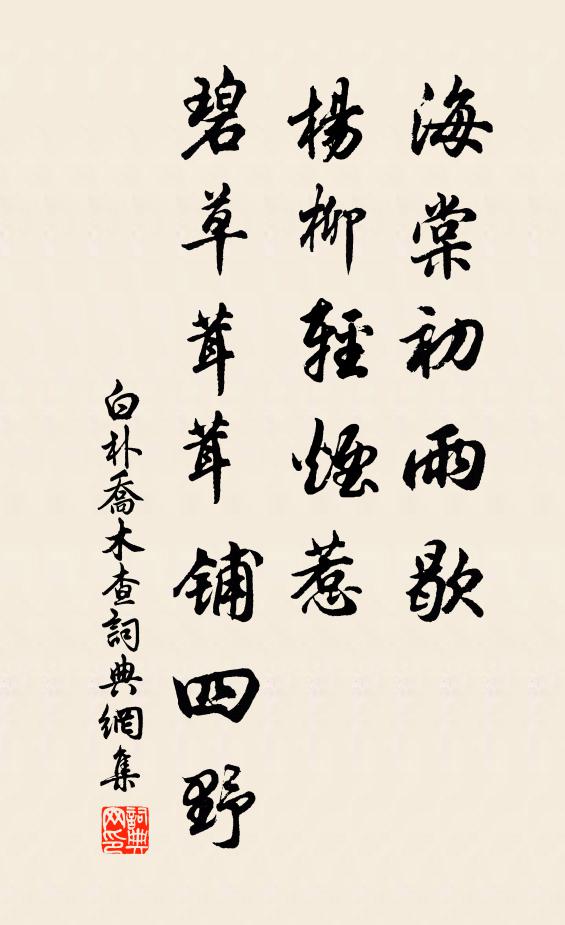 海棠初雨歇
楊柳輕煙惹
碧草茸茸鋪四野
白朴喬木查詞典網集
詞典網印